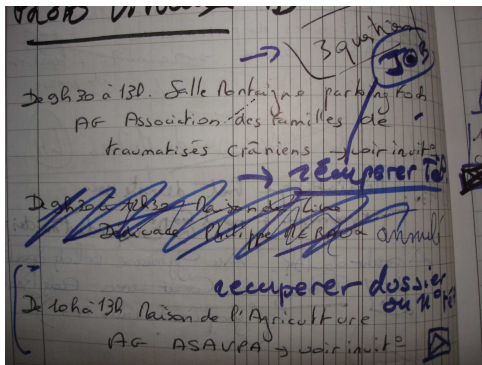 → 3 questions
JOB
De 9h30 à 13h. Salle Montaigne parking Foch
AG Association des familles de
traumatisés crâniens → voir invité
→ récuperer
De 9h30 à 12h30 Maison du Livre
Dédicace Philippe annulé
recuperer dossier
De 10h à 13h Maison de l'Agriculture
ou
AG ASAVPA → voir invité